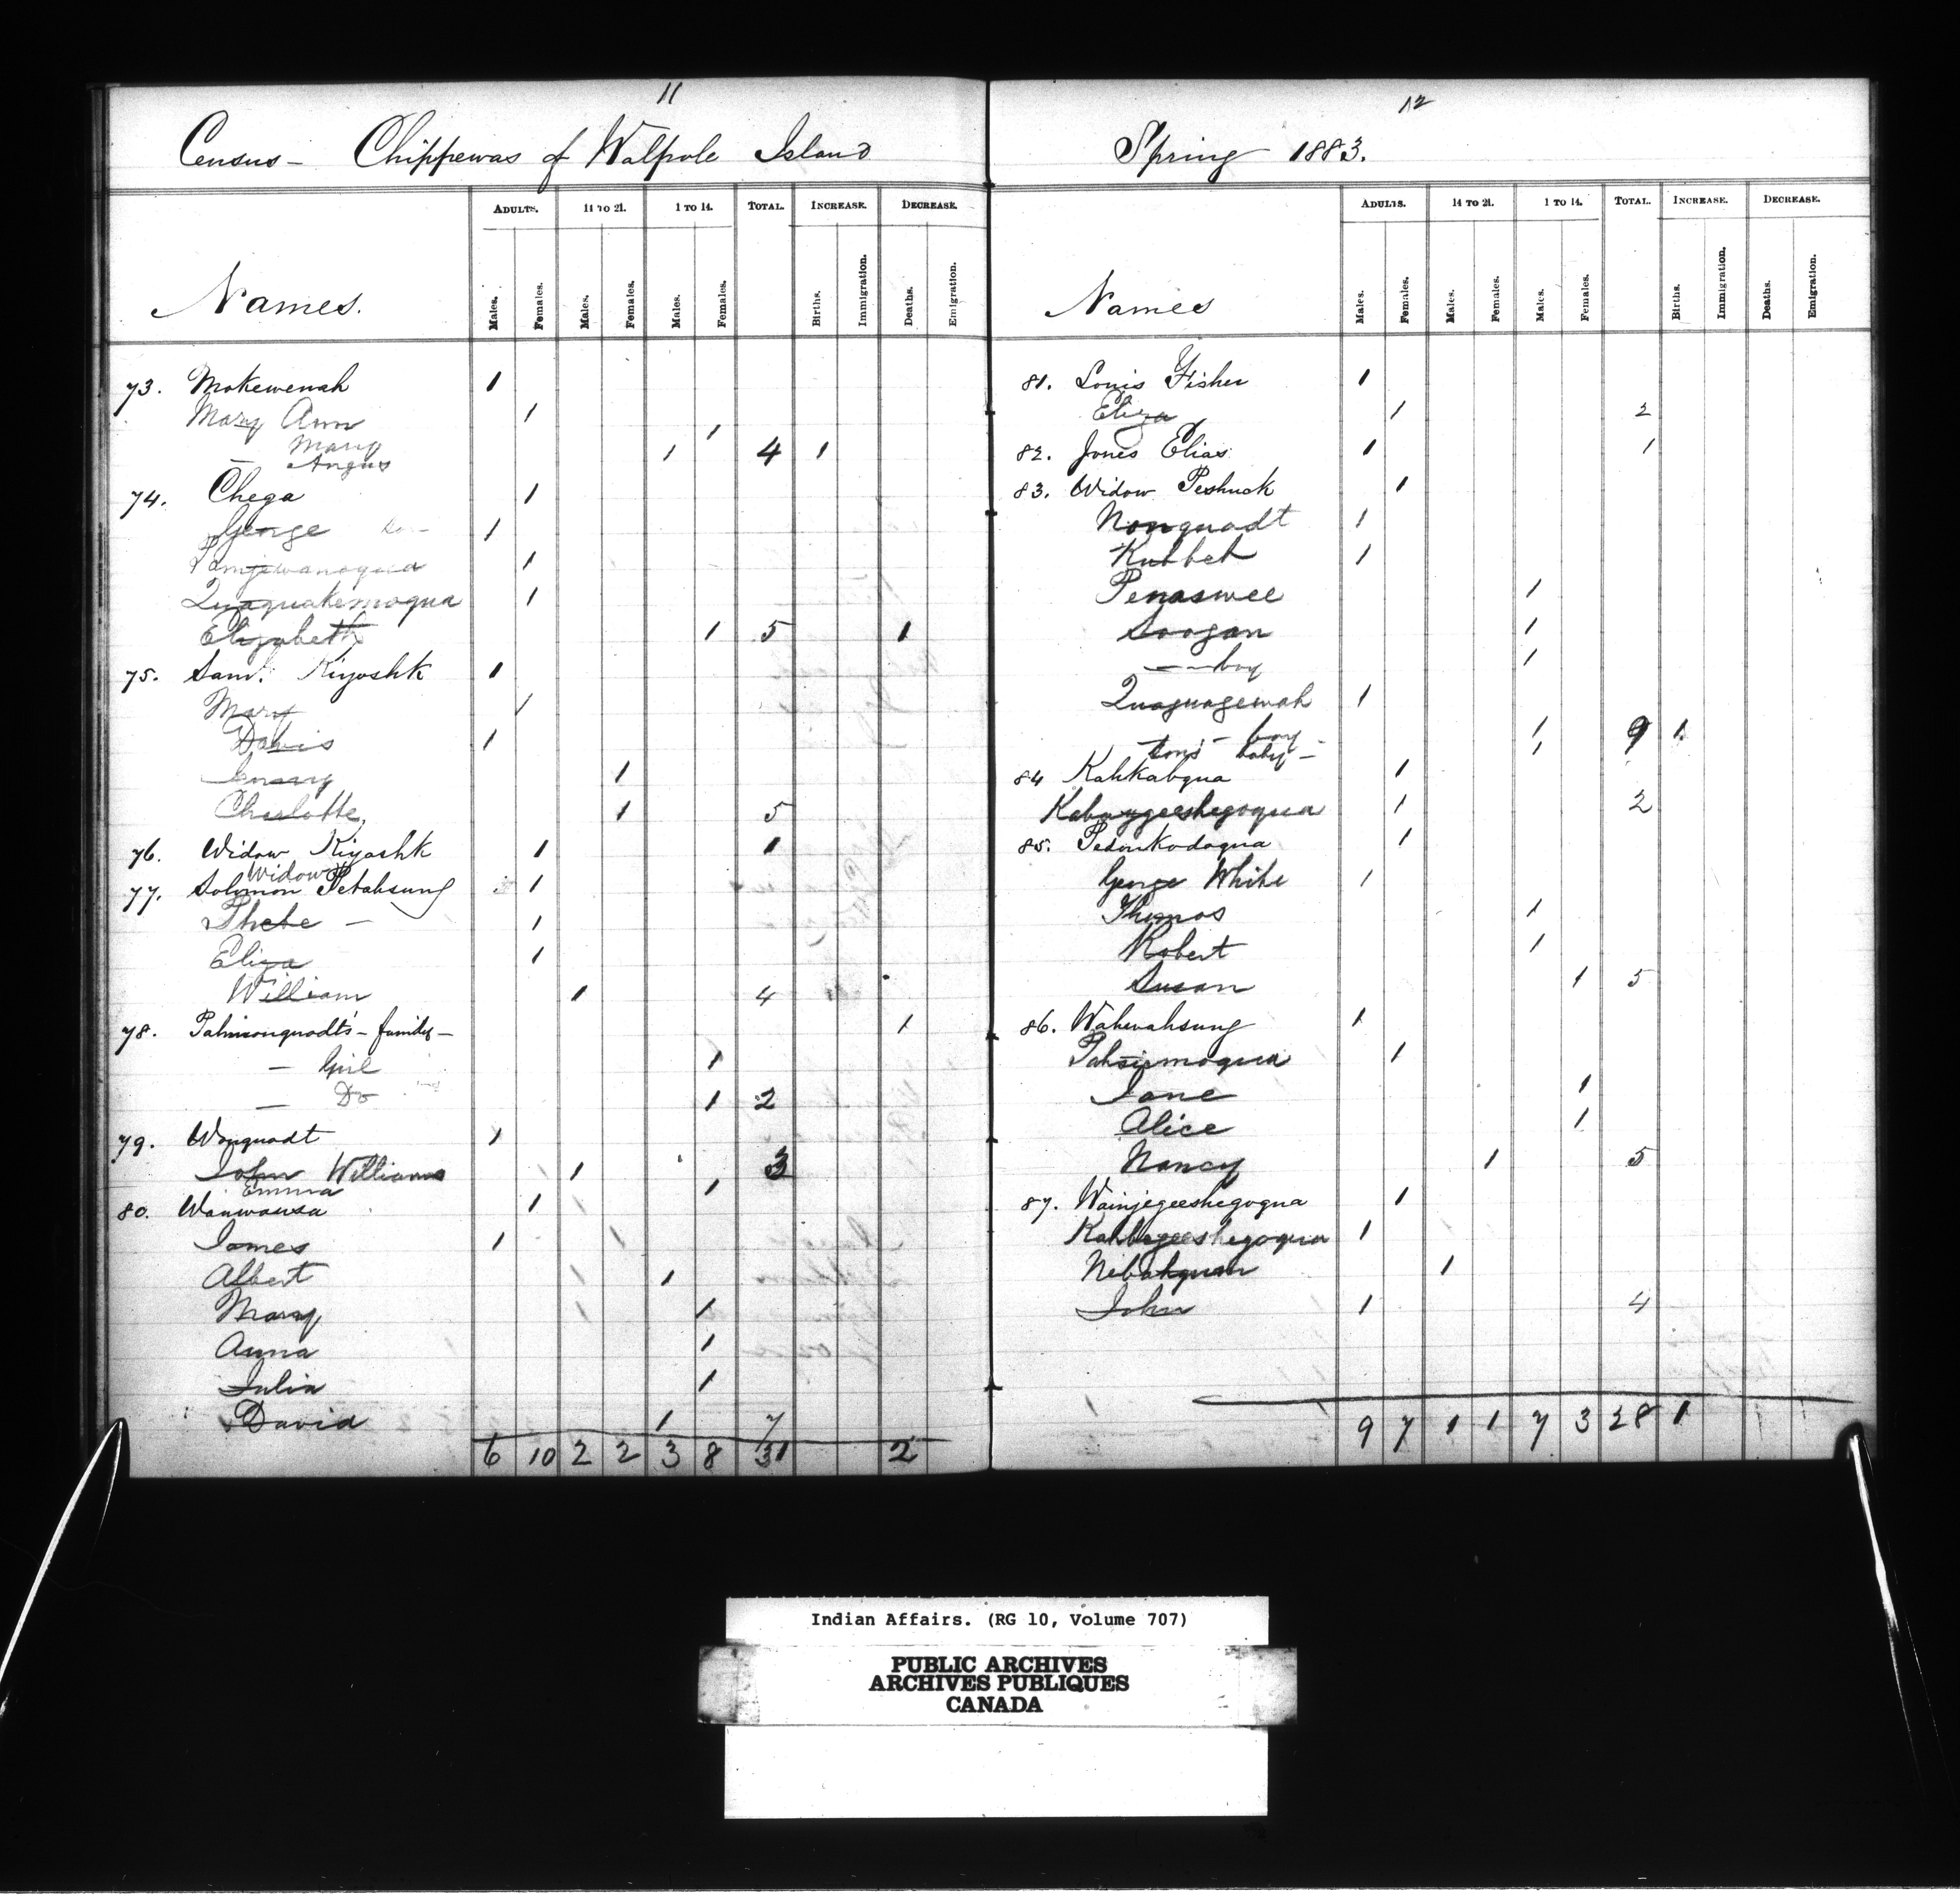 11
Census - Chippewas of Walpole Island
Names.
ADULTS. 14 TO 21. 1 TO 14. TOTAL. INCREASE. DECREASE.
Males. Females. Males. Females. Males. Females. Births. Immigration. Deaths. Emigration.
73. Mokewenah 1
Mary Ann 1
Mary 1
— Angus 1 4 1
74. Chega 1
George 1
1
Quaquakemoqua 1
Elizabeth 1 5 1
75. Saml. Kiyoshk 1
Mary 1
Davis 1
1
Charlotte, 1 5
76. Widow Kiyoshk 1 1
Widow
77. Solomon Petahsung 1
Phebe — 1
Eliza 1
William 1 4
78. Pahmonquodts - family - 1
— Girl 1
— Do 1 2
79. Wonquodt 1
John Williams 1 3
Emma 1
80. Wauwausa 1
James 1
Albert 1
Mary 1
Anna 1
Julia 1
David 1 7
6 10 2 2 3 8 31 2
12
Spring 1883.
Names
ADULTS. 14 TO 21. 1 TO 14. TOTAL. INCREASE. DECREASE.
Males. Females. Males. Females. Males. Females. Births. Immigration. Deaths. Emigration.
81. Louis Fisher 1
Eliza 1 2
82. Jones Elias 1 1
83. Widow Peshuck 1
Nonquodt 1
Kubbeh 1
Penaswee 1
Soogan 1
— boy 1
Quaquagewah 1
— boy 1 9 1
Sons baby — 1
84 Kahkabqua 1
Kabaygeeshegoqua 1 2
85. Pedonkodoqua 1
George White 1
Thomas 1
Robert 1
Susan 1 5
86. Wahwahsung 1
Pahsermoqua 1
Jane 1
Alice 1
Nancy 1 5
87. Wainjegeeshegoqua 1
Kahbegeeshegoqua 1
Nebahquam 1
John 1 4
9 7 1 1 7 3 28 1
Indian Affairs. (RG 10, Volume 707)
PUBLIC ARCHIVES
ARCHIVES PUBLIQUES
CANADA